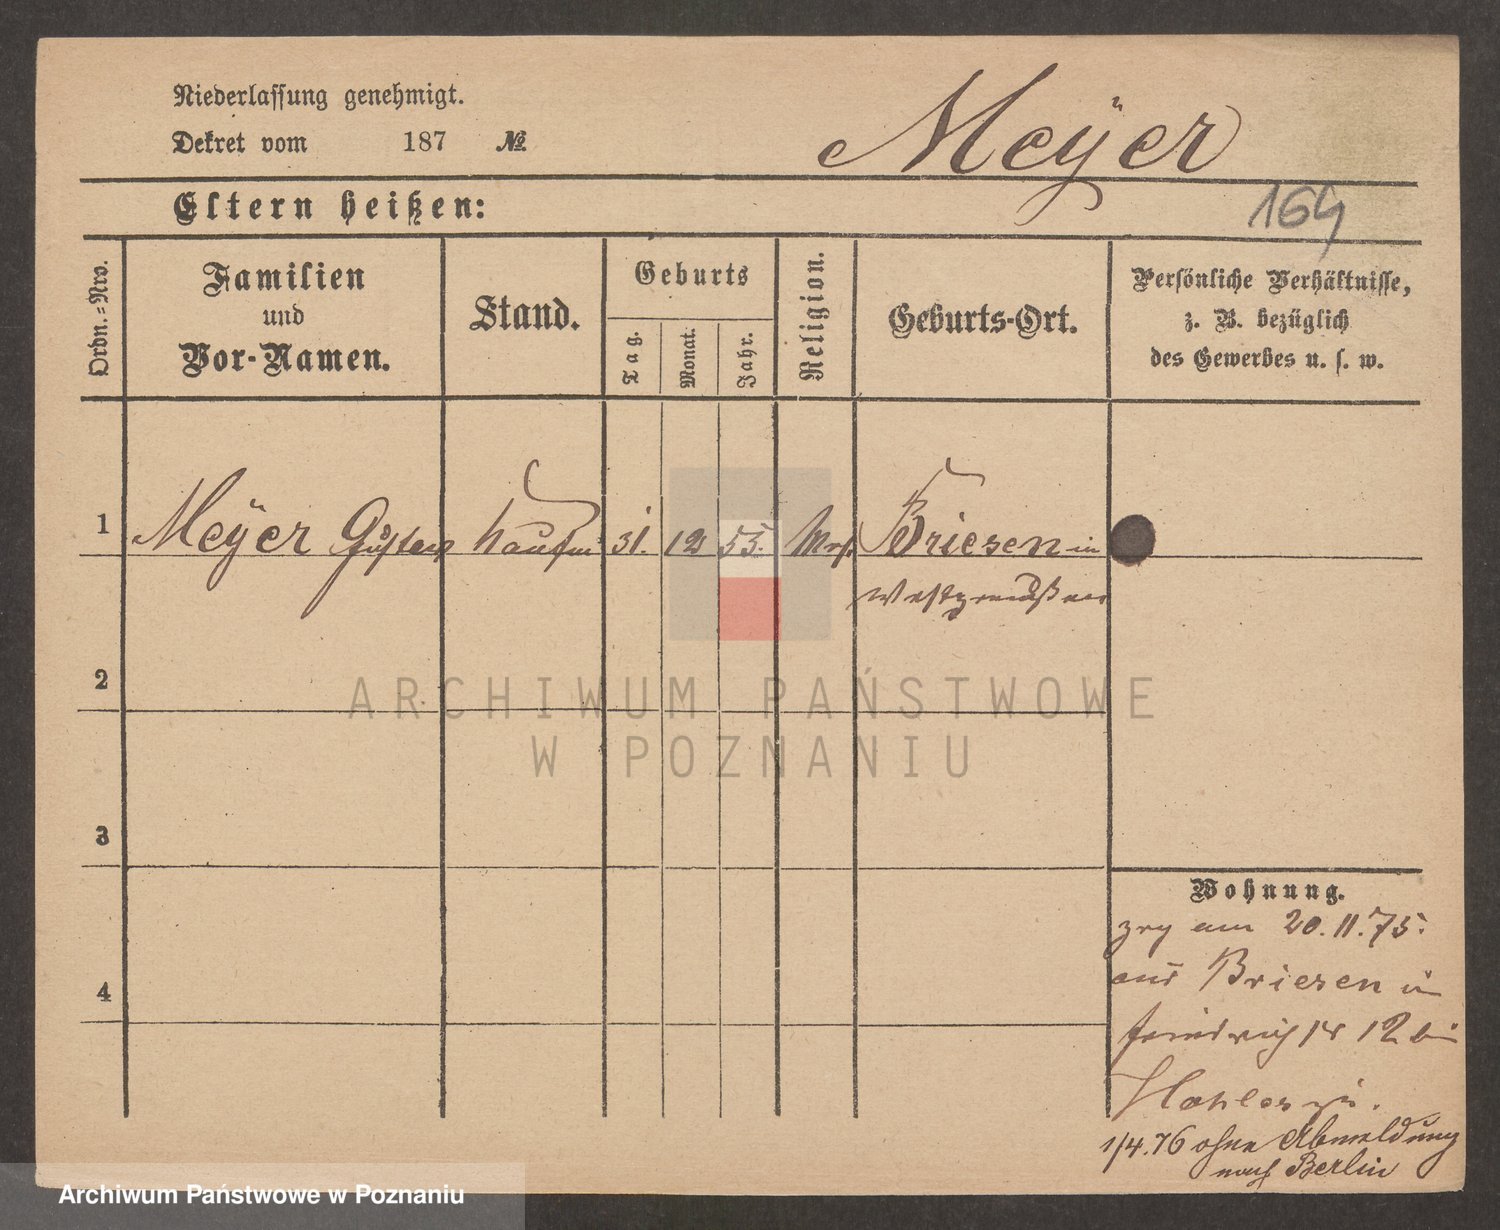 Niederlassung genehmigt.
Dekret vom 187 №
Meÿer
Eltern heißen:
164
Ordn.=Nro.
Familien
und
Vor-Namen.
Stand.
Geburts
Tag.
Monat.
Jahr.
Religion.
Geburts-Ort.
Persönliche Verhältnisse,
z. B. bezüglich
des Gewerbes u. s. w.
1
Meÿer Gustav
31. 12 53. Mos. Briesen in
Westpreußen
2
3
4
Wohnung.
am 20. 11. 75.
aus Briesen in
12 bei
1/4. 76 ohne Abmeldung
nach Berlin
ARCHIWUM PAŃSTWOWE
W POZNANIU
Archiwum Państwowe w Poznaniu